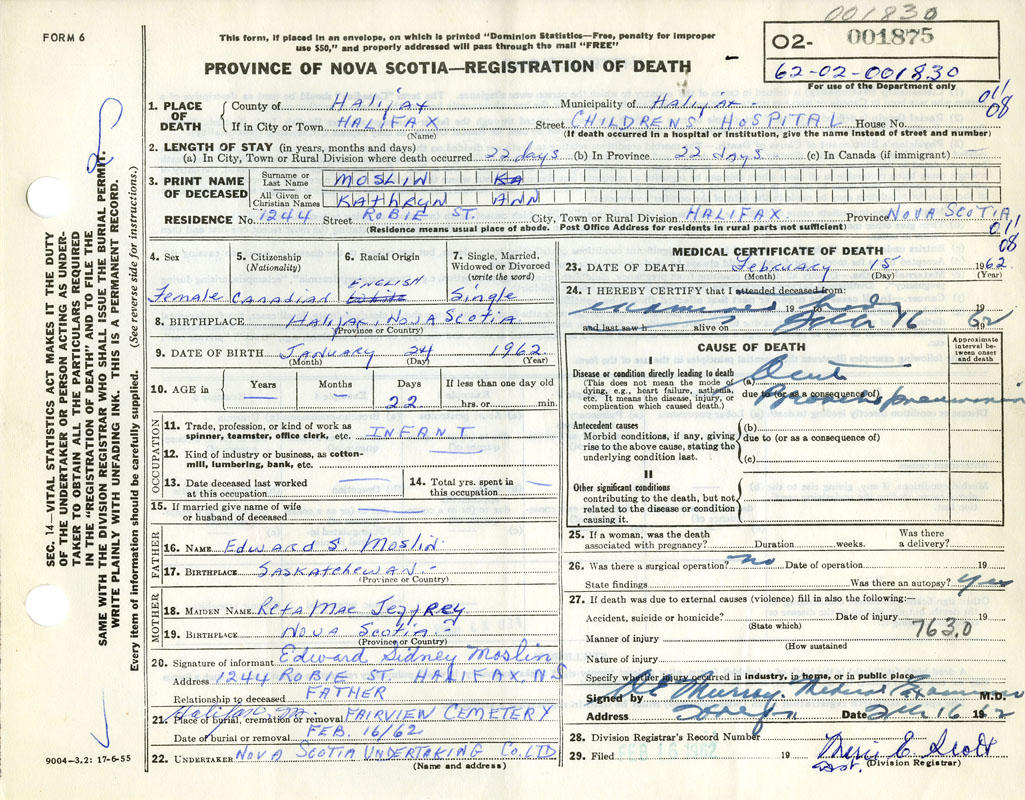 001830
FORM 6
This form, if placed in an envelope, on which is printed "Dominion Statistics—Free, penalty for improper
use $50," and properly addressed will pass through the mail "FREE"
O2- 001875
62-02-001830
For use of the Department only
PROVINCE OF NOVA SCOTIA—REGISTRATION OF DEATH
1. PLACE OF DEATH
County of Halifax Municipality of Halifax
If in City or Town HALIFAX Street CHILDRENS' HOSPITAL House No.
(Name) (If death occurred in a hospital or institution, give the name instead of street and number)
011
08
2. LENGTH OF STAY (in years, months and days)
(a) In City, Town or Rural Division where death occurred 22 days (b) In Province 22 days (c) In Canada (if immigrant) —
3. PRINT NAME OF DECEASED
Surname or Last Name MOSLIN KA
All Given or Christian Names KATHRYN ANN
RESIDENCE No. 1244 Street ROBIE ST. City, Town or Rural Division HALIFAX. Province NOVA SCOTIA
(Residence means usual place of abode. Post Office Address for residents in rural parts not sufficient)
011
08
4. Sex
Female
5. Citizenship (Nationality)
Canadian
6. Racial Origin
ENGLISH
7. Single, Married, Widowed or Divorced (write the word)
Single
8. BIRTHPLACE Halifax, Nova Scotia.
(Province or Country)
9. DATE OF BIRTH January 24 1962.
(Month) (Day) (Year)
10. AGE in Years — Months — Days 22 If less than one day old hrs. or min.
OCCUPATION
11. Trade, profession, or kind of work as spinner, teamster, office clerk, etc. INFANT
12. Kind of industry or business, as cotton-mill, lumbering, bank, etc. —
13. Date deceased last worked at this occupation —
14. Total yrs. spent in this occupation —
15. If married give name of wife or husband of deceased —
FATHER
16. NAME Edward S. Moslin.
17. BIRTHPLACE SASKATCHEWAN.
(Province or Country)
MOTHER
18. MAIDEN NAME Reta Mae Jeffrey
19. BIRTHPLACE Nova Scotia.
(Province or Country)
20. Signature of informant Edward Sidney Moslin
Address 1244 ROBIE ST. HALIFAX, N S
Relationship to deceased FATHER
21. Place of burial, cremation or removal FAIRVIEW CEMETERY
Date of burial or removal FEB. 16/62
22. UNDERTAKER NOVA SCOTIA UNDERTAKING Co. LTD
(Name and address)
MEDICAL CERTIFICATE OF DEATH
23. DATE OF DEATH February 15 1962.
(Month) (Day) (Year)
24. I HEREBY CERTIFY that I attended deceased from:
examined body 19 to 19
and last saw h alive on Feb 16 1962
CAUSE OF DEATH
Approximate interval between onset and death
I
Disease or condition directly leading to death
(This does not mean the mode of dying, e.g., heart failure, asthenia, etc. It means the disease, injury, or complication which caused death.)
(a) Acute
due to (or as a consequence of) Bronchopneumonia
Antecedent causes
Morbid conditions, if any, giving rise to the above cause, stating the underlying condition last.
(b)
due to (or as a consequence of)
(c)
II
Other significant conditions
contributing to the death, but not related to the disease or condition causing it.
25. If a woman, was the death associated with pregnancy? Duration weeks. Was there a delivery?
26. Was there a surgical operation? no Date of operation
State findings Was there an autopsy? yes
27. If death was due to external causes (violence) fill in also the following:—
Accident, suicide or homicide? Date of injury 19
(State which)
763.0
Manner of injury
(How sustained
Nature of injury
Specify whether injury occurred in industry, in home, or in public place
Signed by Murray. Medical Examiner M.D.
Address Date Feb 16 1962
28. Division Registrar's Record Number
29. Filed FEB 16 1962 19 C. Scott
(Division Registrar)
SEC. 14—VITAL STATISTICS ACT MAKES IT THE DUTY
OF THE UNDERTAKER OR PERSON ACTING AS UNDER-
TAKER TO OBTAIN ALL THE PARTICULARS REQUIRED
IN THE "REGISTRATION OF DEATH" AND TO FILE THE
SAME WITH THE DIVISION REGISTRAR WHO SHALL ISSUE THE BURIAL PERMIT.
WRITE PLAINLY WITH UNFADING INK. THIS IS A PERMANENT RECORD.
Every item of information should be carefully supplied. (See reverse side for instructions.)
9004—3.2: 17-6-55